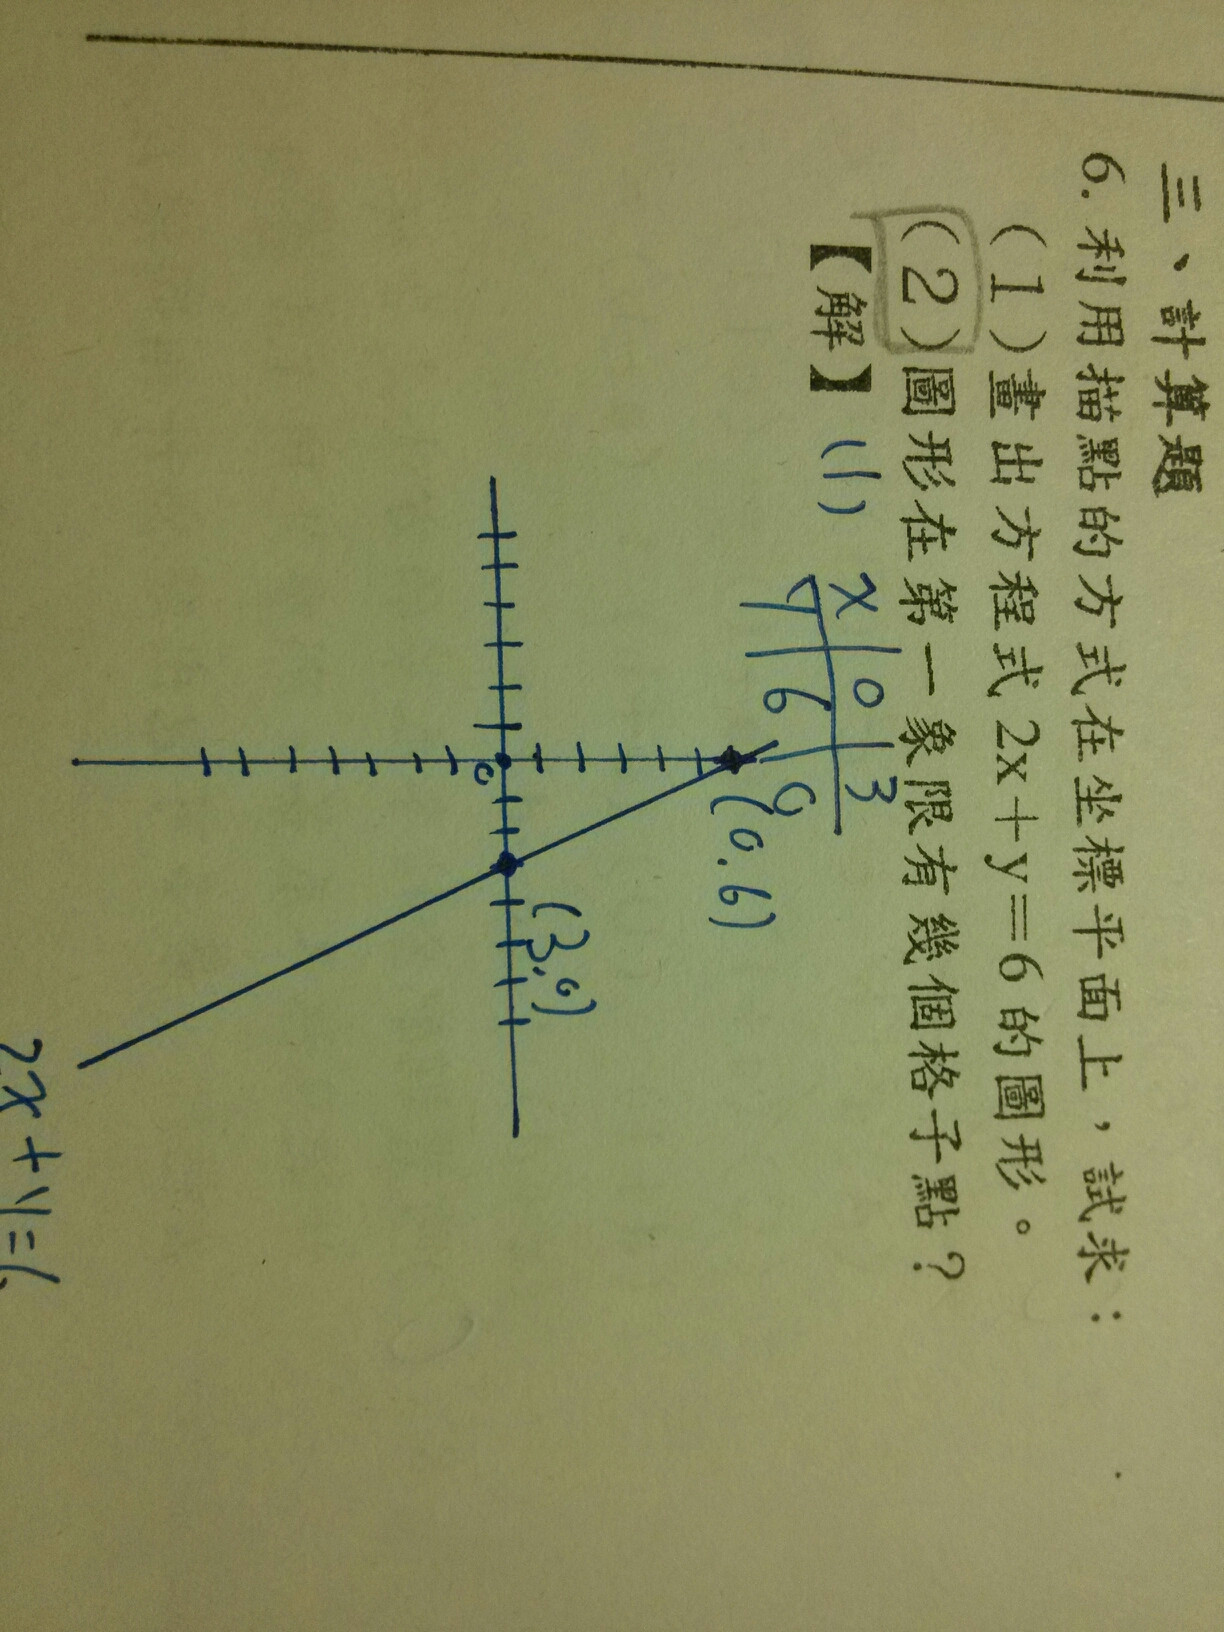 三、計算題
6. 利用描點的方式在坐標平面上，試求：
(1)畫出方程式2x+y=6的圖形。
(2)圖形在第一象限有幾個格子點？
【解】(1)
x | 0 | 3
y | 6 | 0
(0.6)
(3,0)
0
2x+y=6